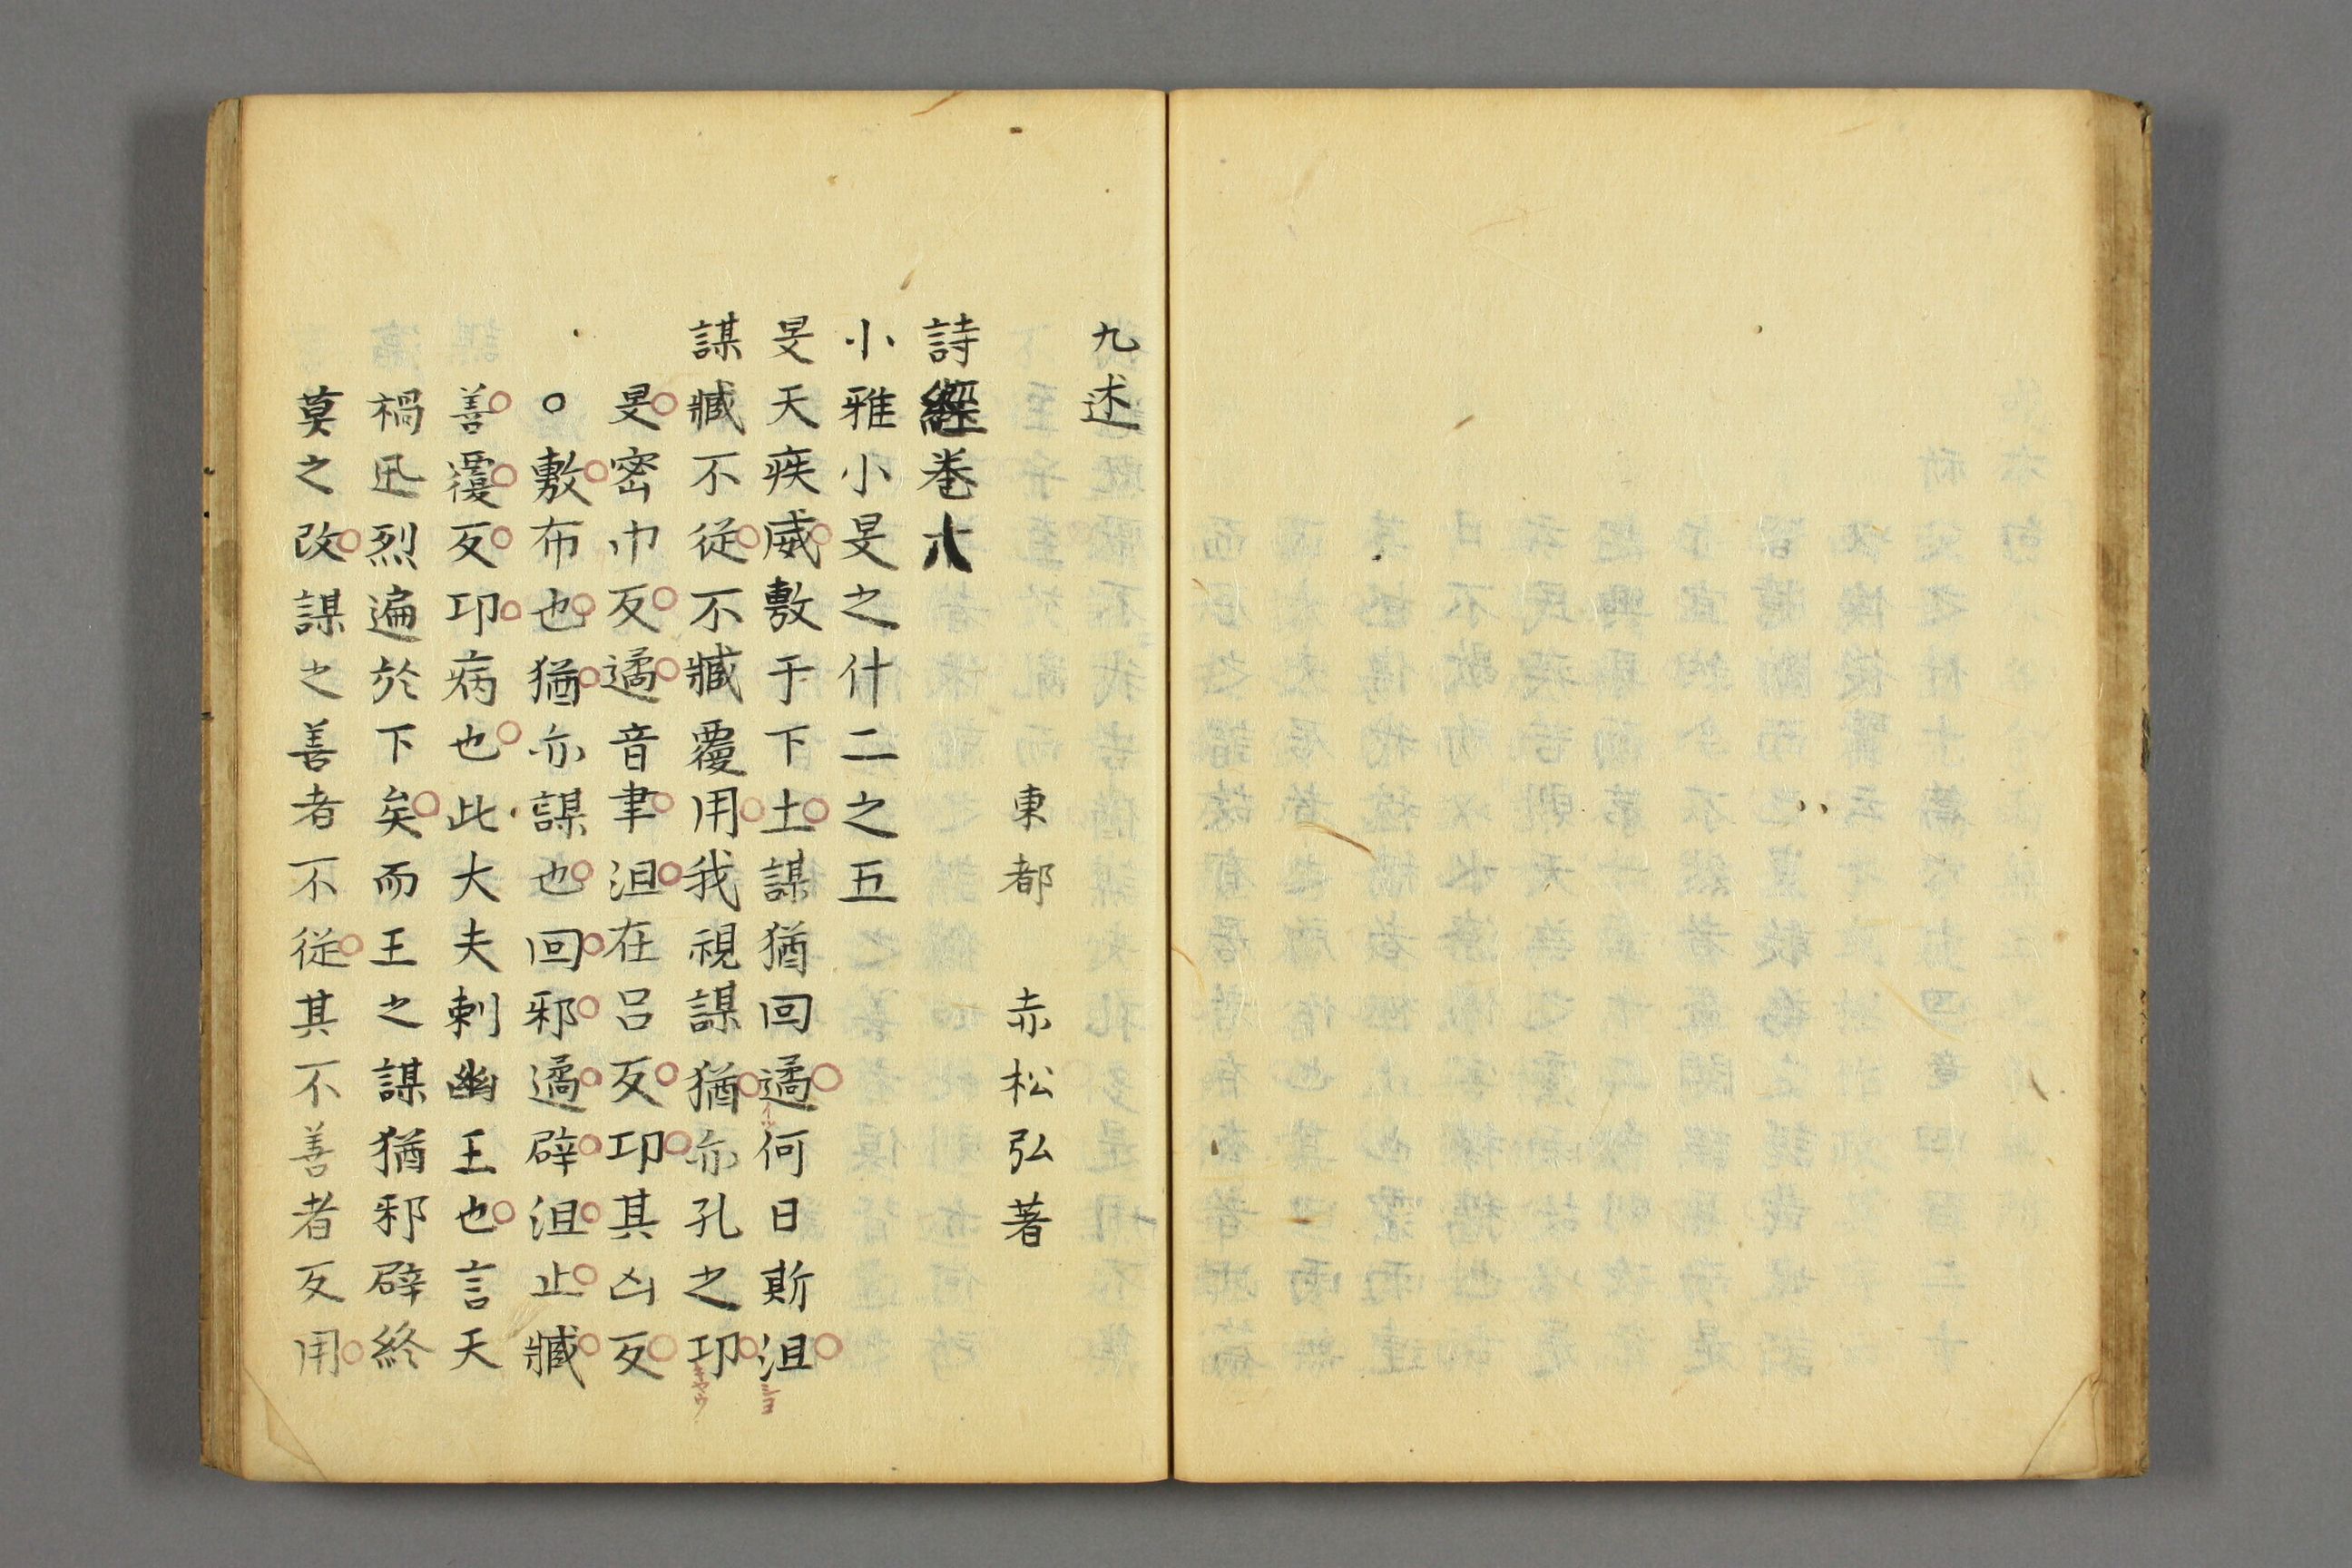 九述
東都 赤松弘著
詩經卷六
小雅小旻之什二之五
旻天疾威敷于下土謀猶回遹何日斯沮
ショ
謀臧不從不臧覆用我視謀猶亦孔之邛
キヤウ
旻密巾反遹音聿沮在呂反邛其凶反
○敷布也猶亦謀也回邪遹辟沮止臧
善覆反邛病也此大夫刺幽王也言天
禍迅烈遍於下矣而王之謀猶邪辟終
莫之改謀之善者不從其不善者反用